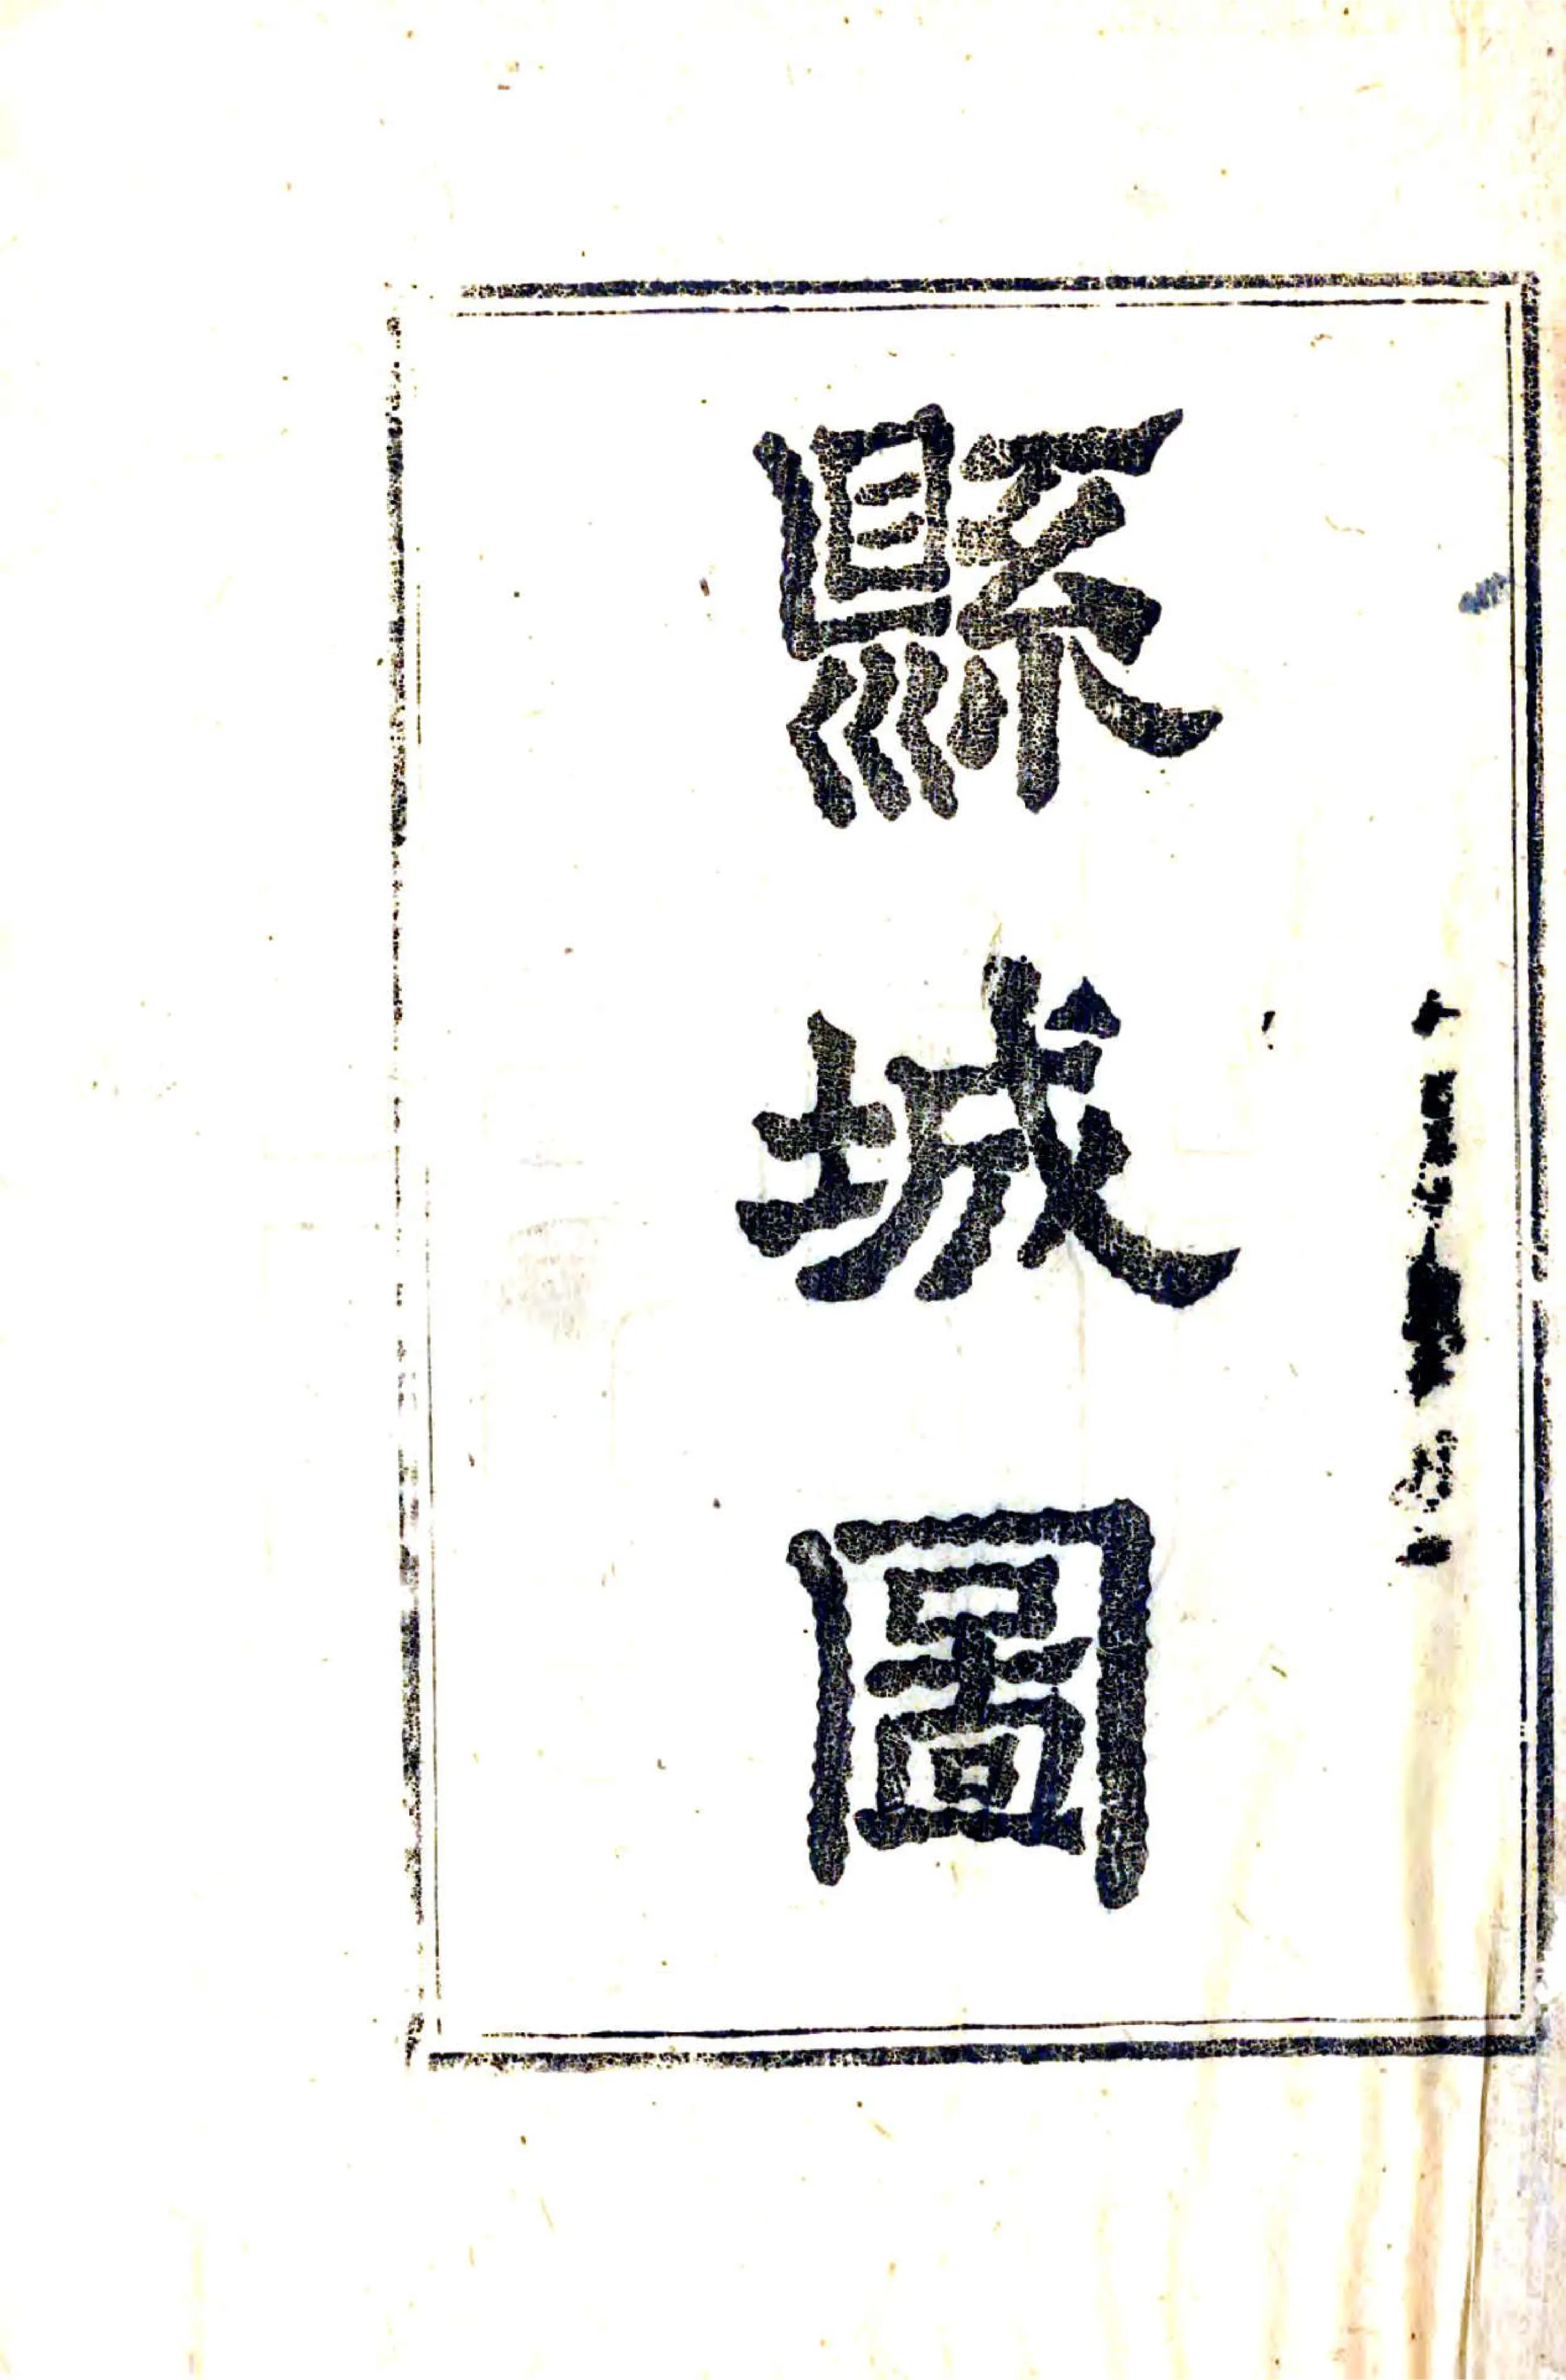 縣城圖